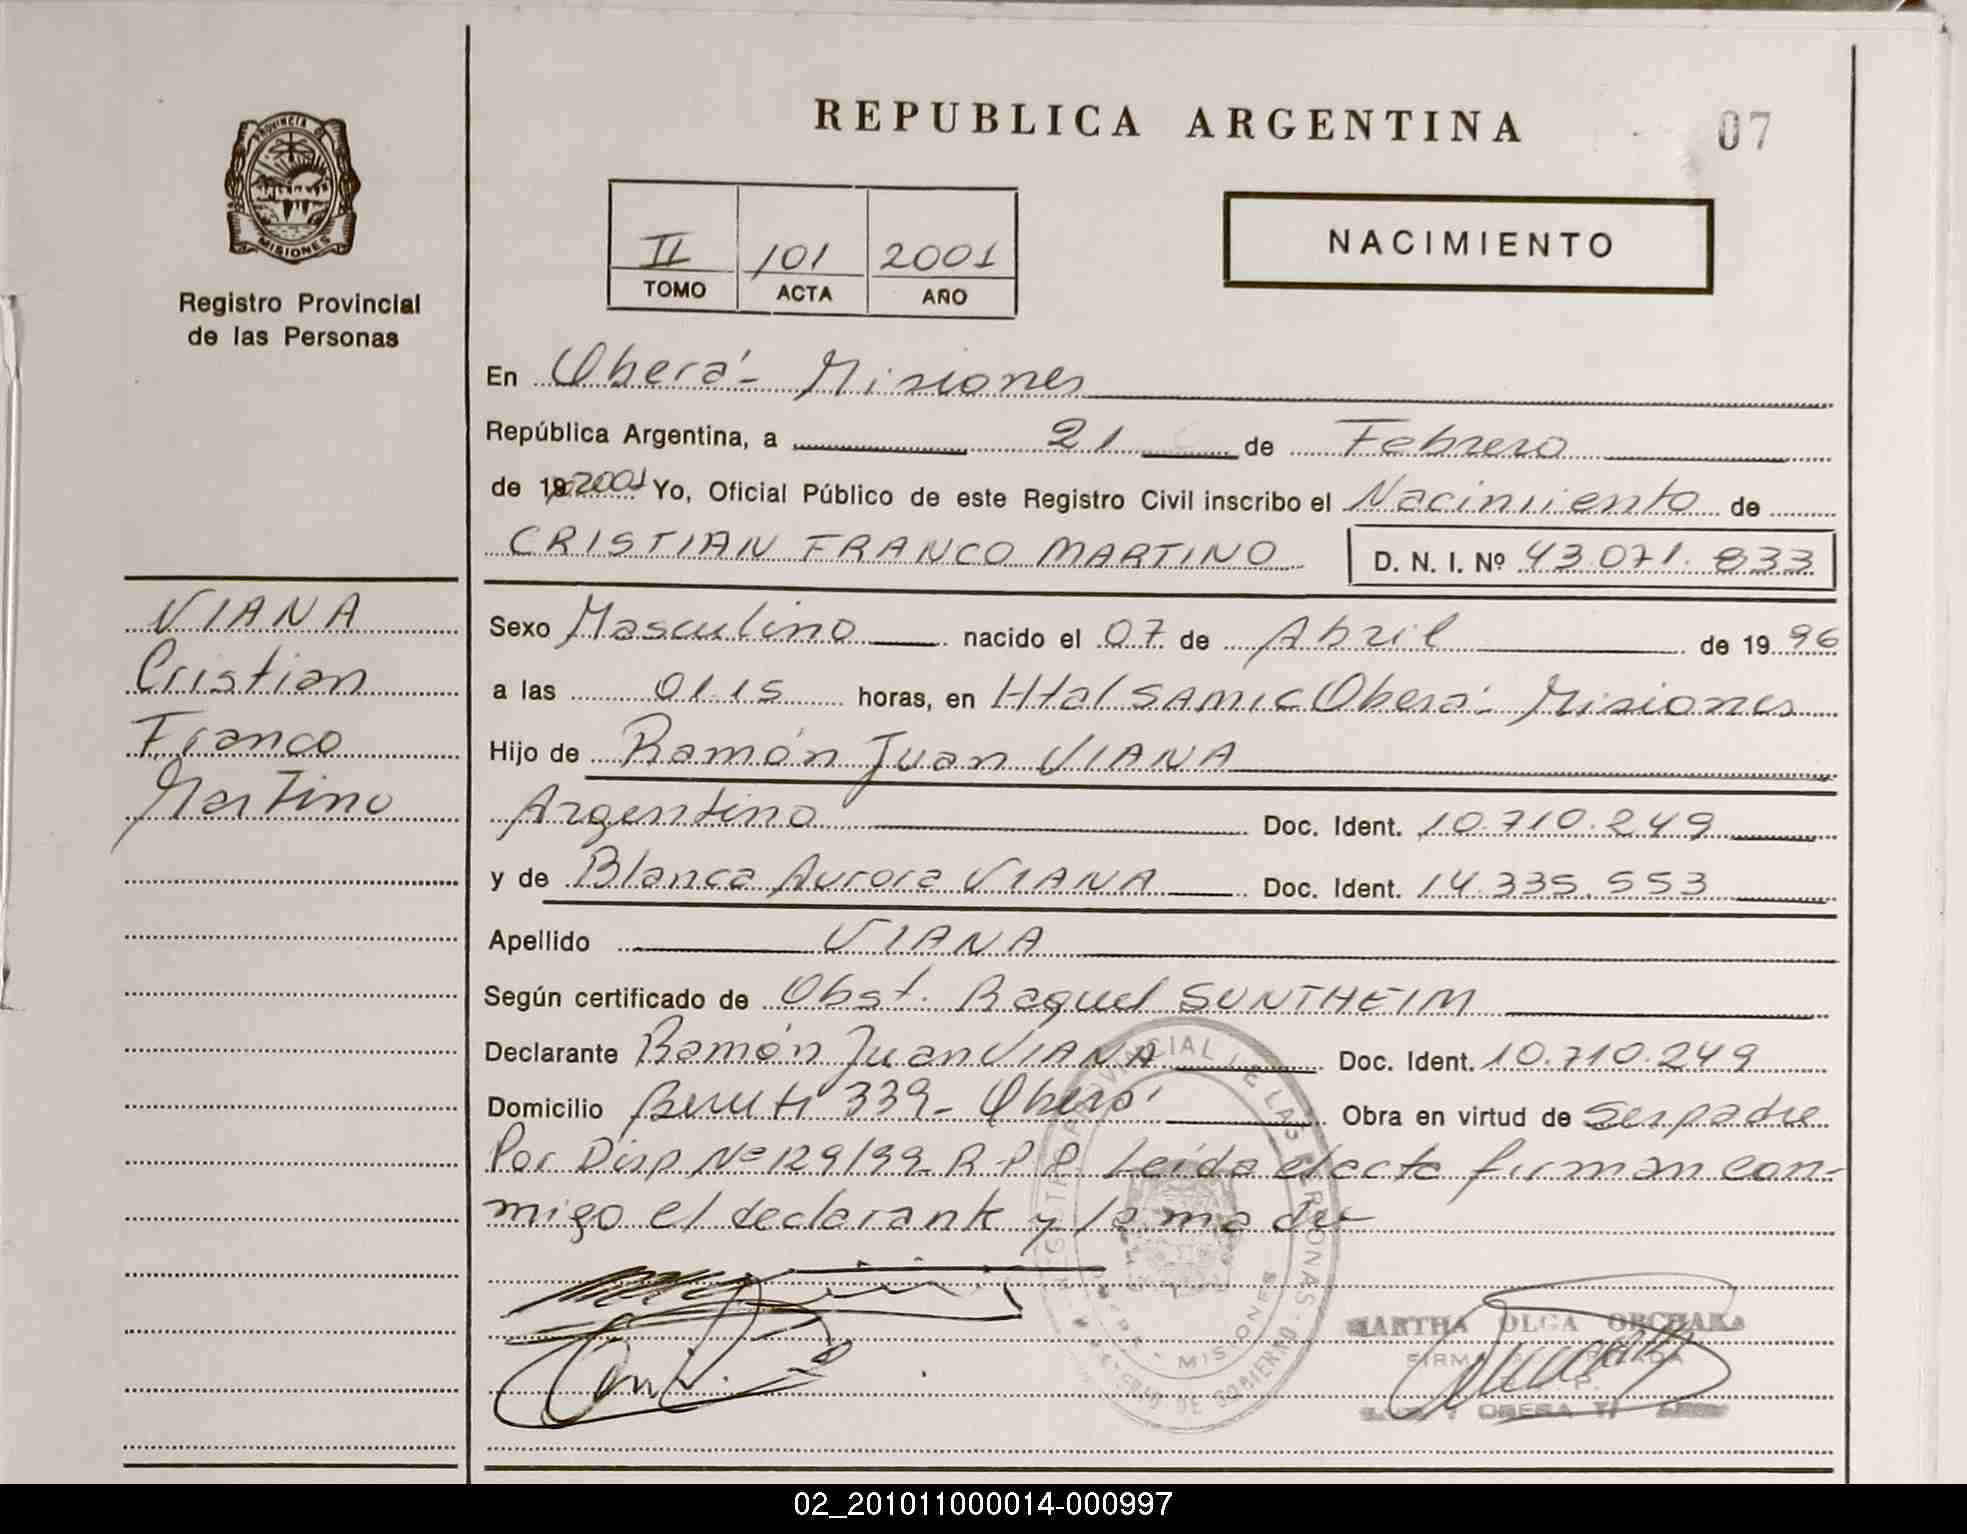 PROVINCIA DE
MISIONES
Registro Provincial
de las Personas
VIANA
Cristian
Franco
Martino
REPUBLICA ARGENTINA
07
II 101 2001
TOMO ACTA AÑO
NACIMIENTO
En Oberá - Misiones
República Argentina, a 21 de Febrero
de 19 2001 Yo, Oficial Público de este Registro Civil inscribo el Nacimiento de
CRISTIAN FRANCO MARTINO D. N. I. Nº 43.071.833
Sexo Masculino nacido el 07 de Abril de 19 96
a las 01.15 horas, en Htal SAMIC Oberá - Misiones
Hijo de Ramón Juan VIANA
Argentino Doc. Ident. 10.710.249
y de Blanca Aurora VIANA Doc. Ident. 14.335.553
Apellido VIANA
Según certificado de Obst. Raquel SUNTHEIM
Declarante Ramón Juan VIANA Doc. Ident. 10.710.249
Domicilio Beruti 339 - Oberá Obra en virtud de ser padre
Por Disp Nº 129/99 R.P.P. Leída el acta firman con-
migo el declarante y la madre
REGISTRO PROVINCIAL DE LAS PERSONAS
MISIONES
DE GOBIERNO
MARTHA OLGA
OBERA
02_201011000014-000997